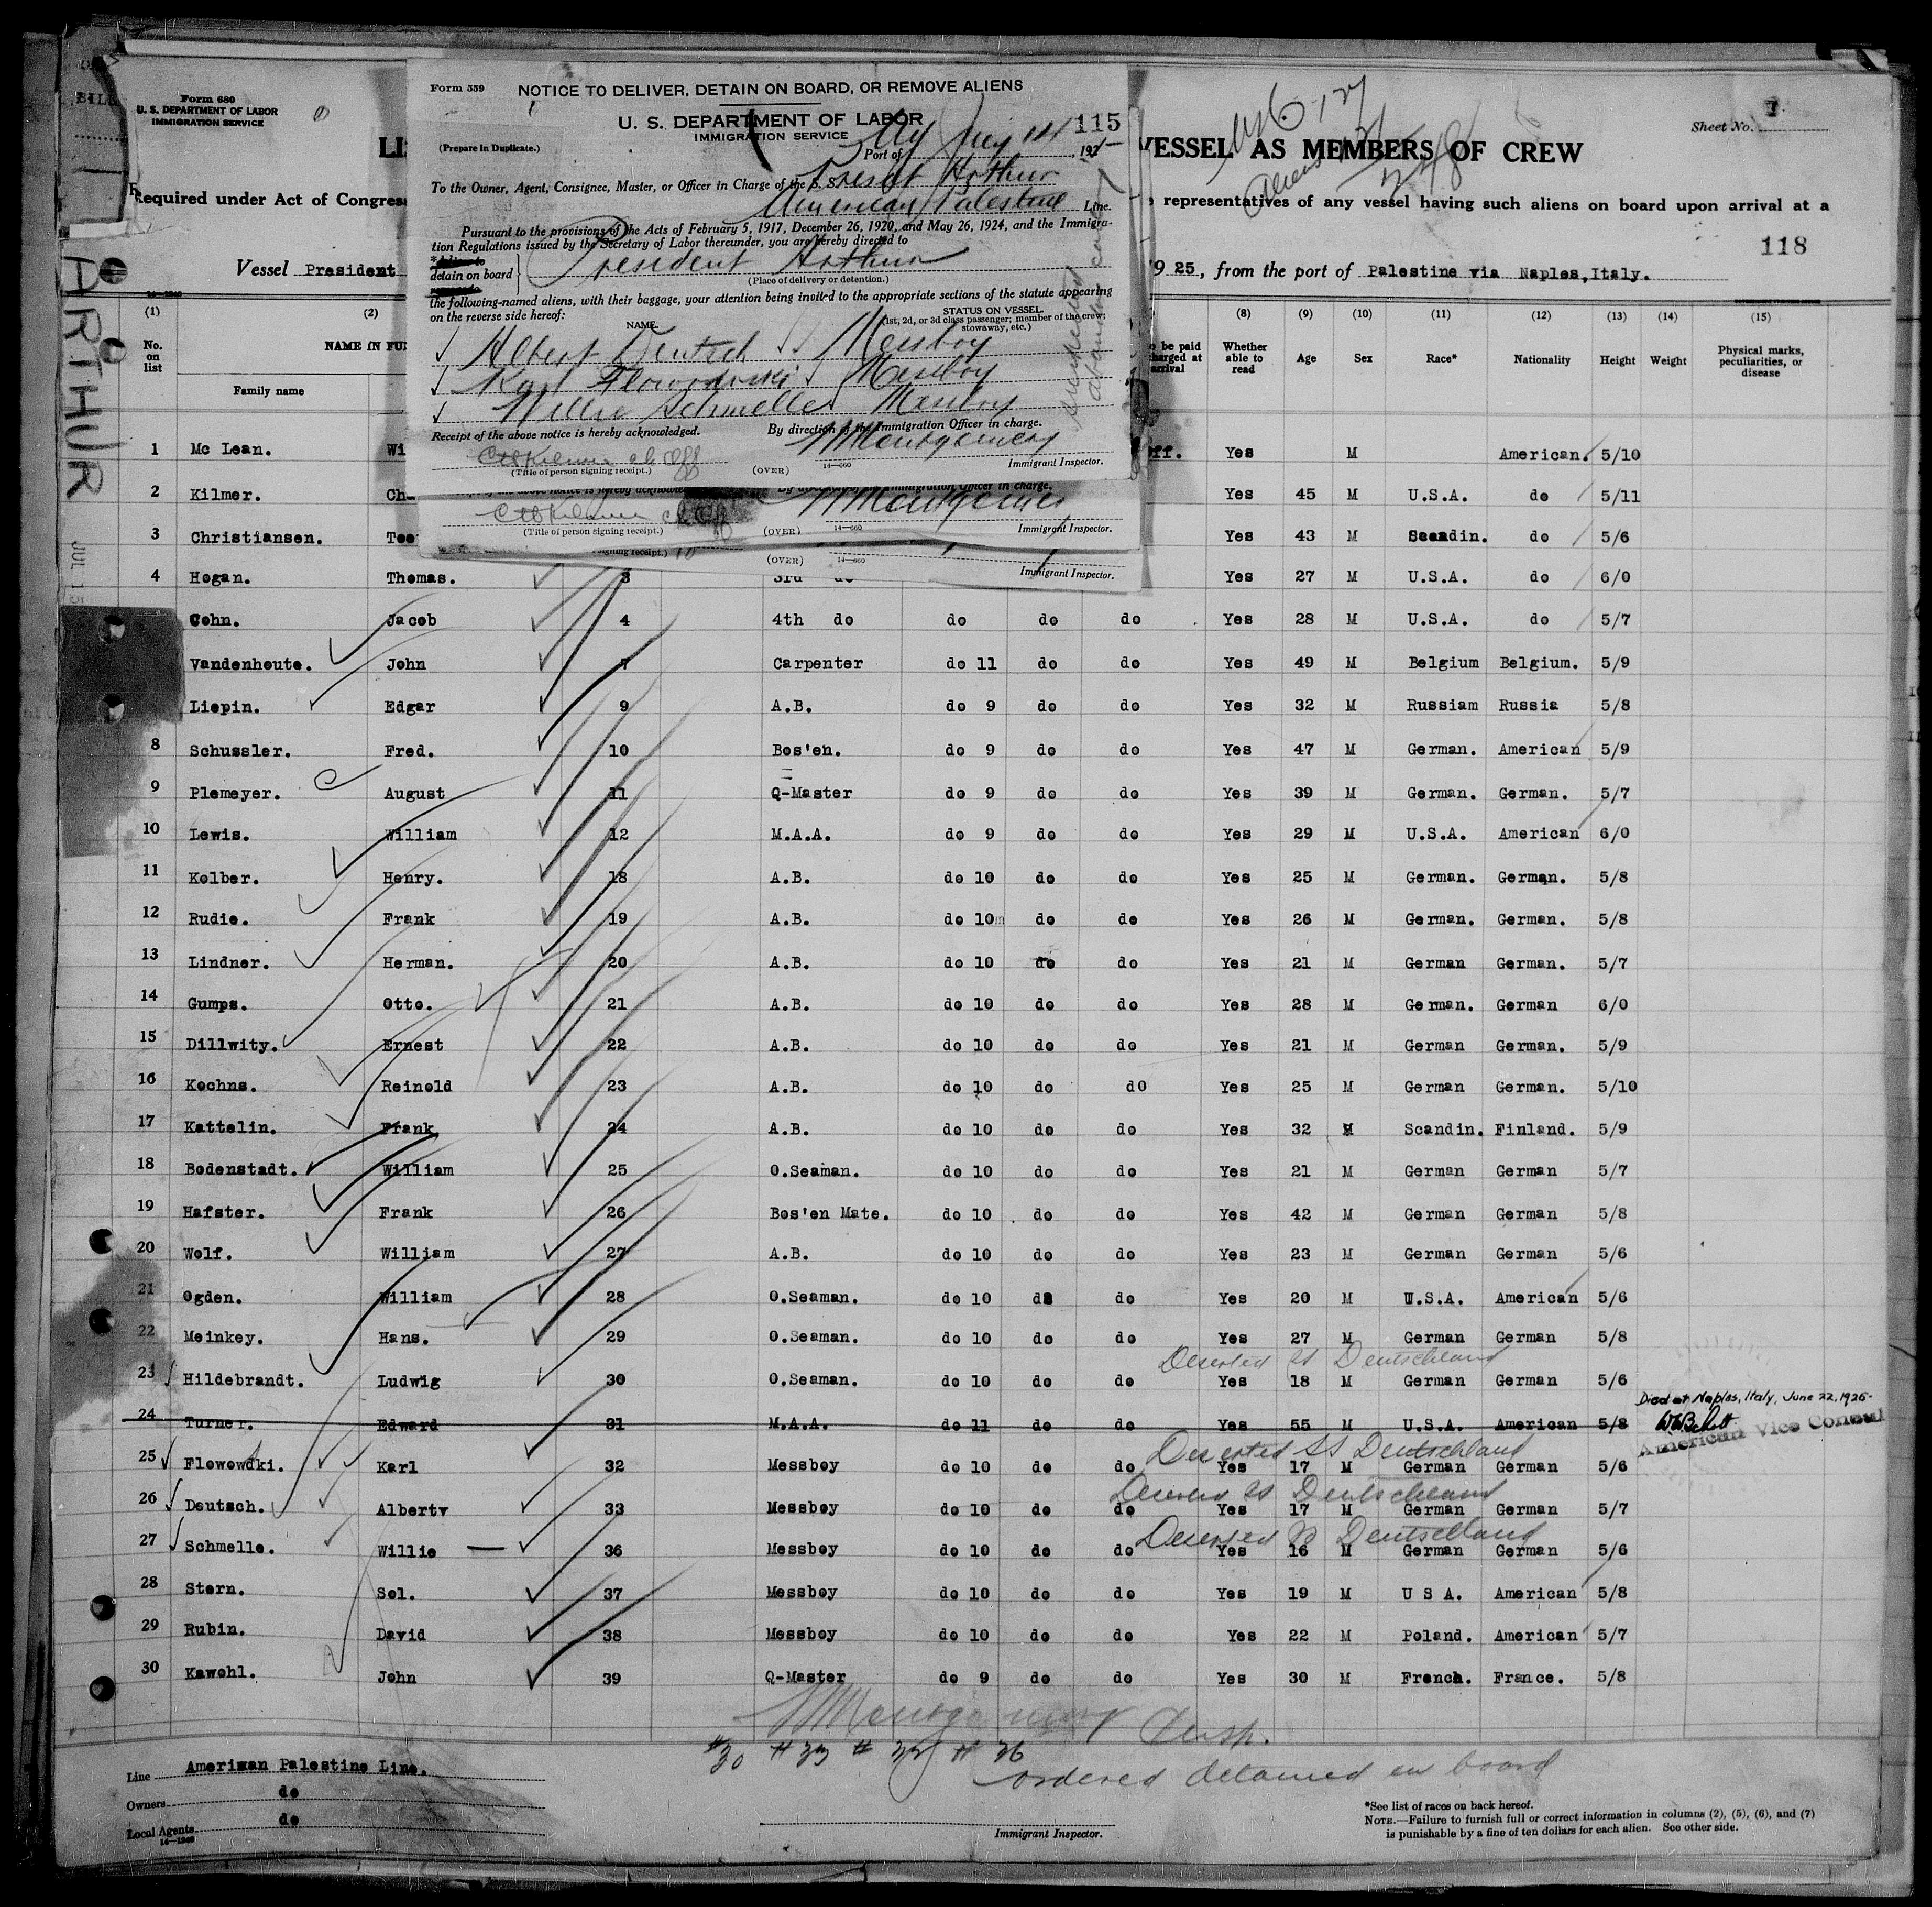 Form 680
U. S. DEPARTMENT OF LABOR
IMMIGRATION SERVICE
Form 559 NOTICE TO DELIVER, DETAIN ON BOARD, OR REMOVE ALIENS
U. S. DEPARTMENT OF LABOR 115
IMMIGRATION SERVICE
(Prepare in Duplicate.)
Port of NY July 14, 192
To the Owner, Agent, Consignee, Master, or Officer in Charge of the S. S. Presdt Arthur
American Palestine Line.
Pursuant to the provisions of the Acts of February 5, 1917, December 26, 1920, and May 26, 1924, and the Immigra-
tion Regulations issued by the Secretary of Labor thereunder, you are hereby directed to
detain on board President Arthur
(Place of delivery or detention.)
the following-named aliens, with their baggage, your attention being invited to the appropriate sections of the statute appearing
on the reverse side hereof:
NAME. STATUS ON VESSEL.
(1st, 2d, or 3d class passenger; member of the crew; stowaway, etc.)
Albert Deutsch Messboy
Karl Flowodwski Messboy
Willie Schmelle Messboy
Receipt of the above notice is hereby acknowledged. By direction of the Immigration Officer in charge.
Montgomery
(Title of person signing receipt.) (OVER) 14—660 Immigrant Inspector.
(Title of person signing receipt.) (OVER) 14—660 Immigrant Inspector.
(OVER) 14—660 Immigrant Inspector.
Sheet No. 1
VESSEL AS MEMBERS OF CREW
Required under Act of Congres
representatives of any vessel having such aliens on board upon arrival at a
118
Vessel President
25, from the port of Palestine via Naples, Italy.
ARTHUR
(1) (2) (8) (9) (10) (11) (12) (13) (14) (15)
No. on list
Family name
Whether able to read Age Sex Race* Nationality Height Weight Physical marks, peculiarities, or disease
1 Mc Lean. Wi Off. Yes M American. 5/10
2 Kilmer. Ch Yes 45 M U.S.A. do 5/11
3 Christiansen. Yes 43 M Scandin. do 5/6
4 Hogan. Thomas. 3 3rd do Yes 27 M U.S.A. do 6/0
Cohn. Jacob 4 4th do do do do Yes 28 M U.S.A. do 5/7
Vandenhoute. John 7 Carpenter do 11 do do Yes 49 M Belgium Belgium. 5/9
Liepin. Edgar 9 A.B. do 9 do do Yes 32 M Russiam Russia 5/8
8 Schussler. Fred. 10 Bos'en. do 9 do do Yes 47 M German. American 5/9
9 Plemeyer. August 11 Q-Master do 9 do do Yes 39 M German. German. 5/7
10 Lewis. William 12 M.A.A. do 9 do do Yes 29 M U.S.A. American 6/0
11 Kolber. Henry. 18 A.B. do 10 do do Yes 25 M German. German. 5/8
12 Rudie. Frank 19 A.B. do 10 do do Yes 26 M German. German. 5/8
13 Lindner. Herman. 20 A.B. do 10 do do Yes 21 M German German. 5/7
14 Gumps. Otto. 21 A.B. do 10 do do Yes 28 M German. German 6/0
15 Dillwity. Ernest 22 A.B. do 10 do do Yes 21 M German German. 5/9
16 Kochns. Reinold 23 A.B. do 10 do do Yes 25 M German German. 5/10
17 Kattelin. Frank 24 A.B. do 10 do do Yes 32 M Scandin. Finland. 5/9
18 Bodenstadt. William 25 O.Seaman. do 10 do do Yes 21 M German German 5/7
19 Hafster. Frank 26 Bos'en Mate. do 10 do do Yes 42 M German German 5/8
20 Wolf. William 27 A.B. do 10 do do Yes 23 M German German 5/6
21 Ogden. William 28 O.Seaman. do 10 do do Yes 20 M U.S.A. American 5/6
22 Meinkey. Hans. 29 O.Seaman. do 10 do do Yes 27 M German German 5/8
Deserted SS Deutschland
23 Hildebrandt. Ludwig 30 O.Seaman. do 10 do do Yes 18 M German German 5/6
Died at Naples, Italy, June 22, 1925
24 Turner. Edward 31 M.A.A. do 11 do do Yes 55 M U.S.A. American 5/8
American Vice Consul
Deserted SS Deutschland
25 Flowowdki. Karl 32 Messboy do 10 do do Yes 17 M German German 5/6
Deserted SS Deutschland
26 Deutsch. Albertv 33 Messboy do 10 do do Yes 17 M German German 5/7
Deserted SS Deutschland
27 Schmelle. Willie 36 Messboy do 10 do do Yes 16 M German German 5/6
28 Stern. Sol. 37 Messboy do 10 do do Yes 19 M U S A. American 5/8
29 Rubin. David 38 Messboy do 10 do do Yes 22 M Poland. American 5/7
30 Kawohl. John 39 Q-Master do 9 do do Yes 30 M French. France. 5/8
Montgomery Insp.
#30 #33 #32 #36
ordered detained on board
Line Ameriman Palestine Line.
Owners do
Local Agents do
14—1240
Immigrant Inspector.
*See list of races on back hereof.
NOTE.—Failure to furnish full or correct information in columns (2), (5), (6), and (7)
is punishable by a fine of ten dollars for each alien. See other side.